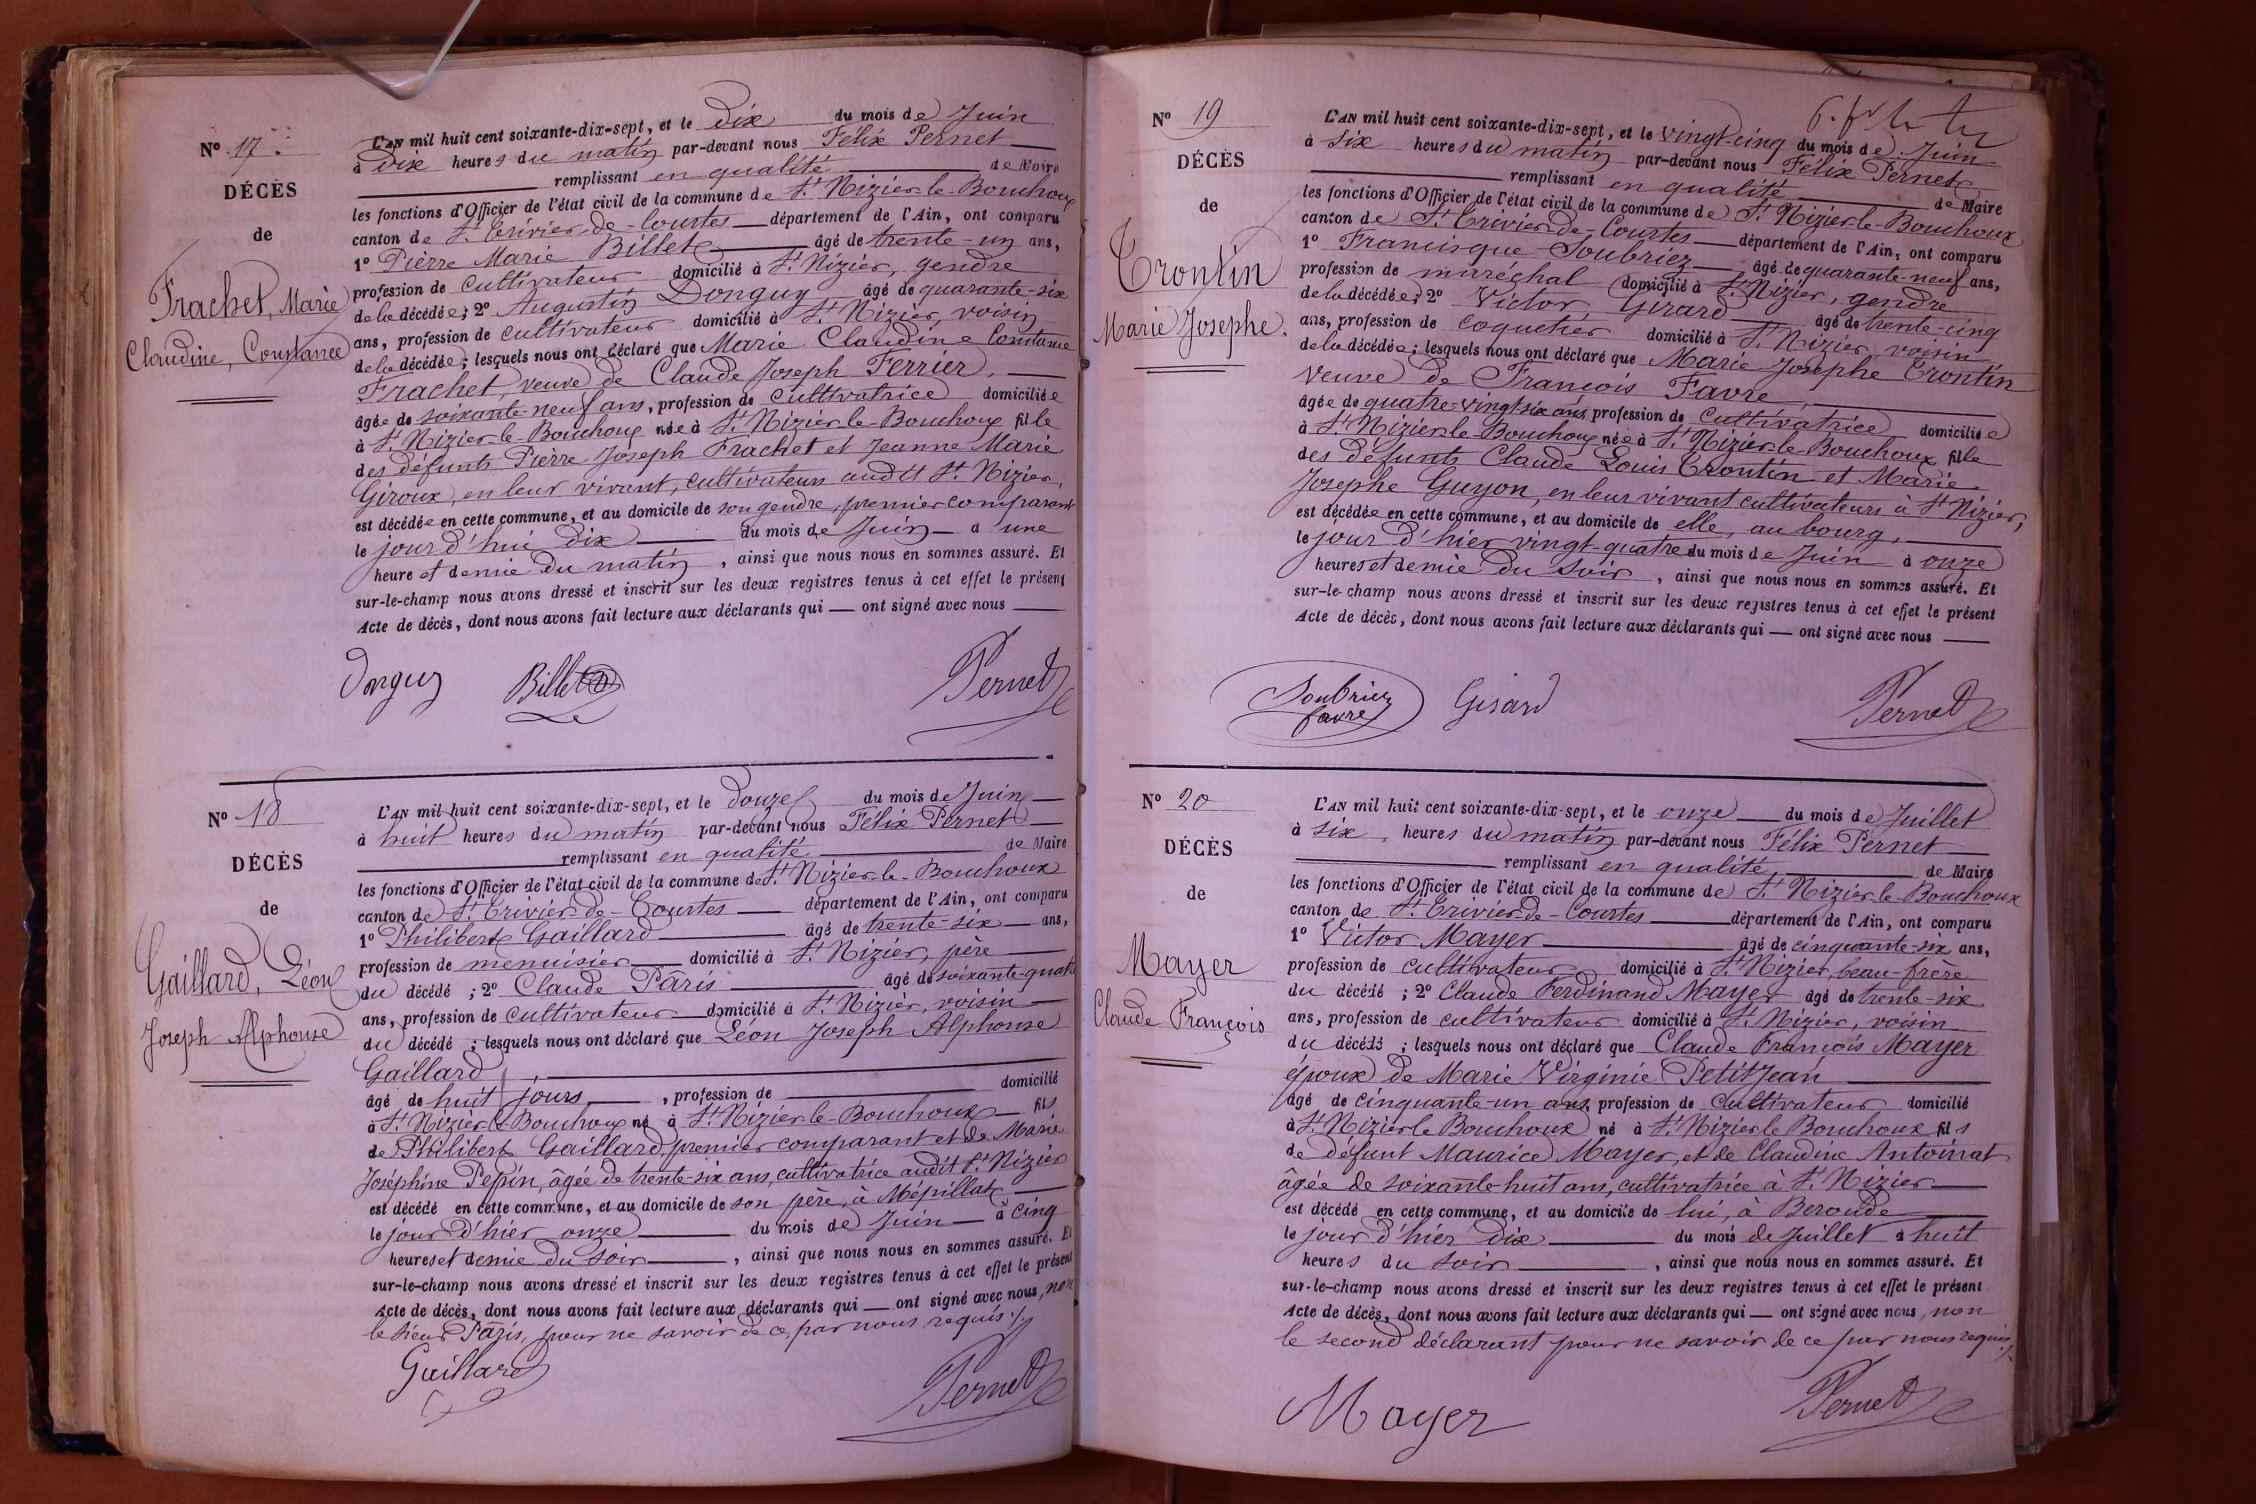 Nº 17.
DÉCÈS
de
Frachet, Marie
Claudine, Constance
L'AN mil huit cent soixante-dix-sept, et le dix du mois de Juin
à dix heures du matin par-devant nous Félix Pernet
remplissant en qualité de Maire
les fonctions d'Officier de l'état civil de la commune de St Nizier-le-Bouchoux
canton de St Trivier-de-Courtes département de l'Ain, ont comparu
1º Pierre Marie Billet âgé de trente-un ans,
profession de cultivateur domicilié à St Nizier, gendre
de la décédée; 2º Augustin Donguy âgé de quarante-six
ans, profession de cultivateur domicilié à St Nizier, voisin
de la décédée; lesquels nous ont déclaré que Marie Claudine Constance
Frachet, veuve de Claude Joseph Ferrier,
âgée de soixante-neuf ans, profession de cultivatrice domiciliée
à St Nizier-le-Bouchoux née à St Nizier-le-Bouchoux fille
des défunts Pierre Joseph Frachet et Jeanne Marie
Giroux, en leur vivant, cultivateurs audit St Nizier,
est décédée en cette commune, et au domicile de son gendre, premier comparant
le jour d'hui dix du mois de Juin à une
heure et demie du matin, ainsi que nous nous en sommes assuré. Et
sur-le-champ nous avons dressé et inscrit sur les deux registres tenus à cet effet le présent
Acte de décès, dont nous avons fait lecture aux déclarants qui — ont signé avec nous
Donguy Billet Pernet
Nº 18
DÉCÈS
de
Gaillard, Léon
Joseph Alphonse
L'AN mil huit cent soixante-dix-sept, et le douze du mois de Juin
à huit heures du matin par-devant nous Félix Pernet
remplissant en qualité de Maire
les fonctions d'Officier de l'état civil de la commune de St Nizier-le-Bouchoux
canton de St Trivier-de-Courtes département de l'Ain, ont comparu
1º Philibert Gaillard âgé de trente-six ans,
profession de menuisier domicilié à St Nizier, père
du décédé ; 2º Claude Pâris âgé de soixante-quatre
ans, profession de cultivateur domicilié à St Nizier, voisin
du décédé ; lesquels nous ont déclaré que Léon Joseph Alphonse
Gaillard,
âgé de huit jours, profession de domicilié
à St Nizier-le-Bouchoux né à St Nizier-le-Bouchoux fils
de Philibert Gaillard, premier comparant et de Marie
Joséphine Pépin, âgée de trente-six ans, cultivatrice audit St Nizier
est décédé en cette commune, et au domicile de son père, à Mépillat
le jour d'hier onze du mois de Juin à cinq
heures et demie du soir, ainsi que nous nous en sommes assuré. Et
sur-le-champ nous avons dressé et inscrit sur les deux registres tenus à cet effet le présent
Acte de décès, dont nous avons fait lecture aux déclarants qui — ont signé avec nous, non
le sieur Pâris, pour ne savoir de ce par nous requis ./.
Gaillard Pernet
Nº 19
DÉCÈS
de
Trontin
Marie Josephe.
L'AN mil huit cent soixante-dix-sept, et le vingt-cinq du mois de Juin
à six heures du matin par-devant nous Félix Pernet
remplissant en qualité de Maire
les fonctions d'Officier de l'état civil de la commune de St Nizier-le-Bouchoux
canton de St Trivier-de-Courtes département de l'Ain, ont comparu
1º Francisque Soubriez âgé de quarante-neuf ans,
profession de maréchal domicilié à St Nizier, gendre
de la décédée; 2º Victor Girard âgé de trente-cinq
ans, profession de coquetier domicilié à St Nizier, voisin
de la décédée; lesquels nous ont déclaré que Marie Josephe Trontin
veuve de François Favre,
âgée de quatre-vingt-six ans, profession de cultivatrice domiciliée
à St Nizier-le-Bouchoux née à St Nizier-le-Bouchoux fille
des défunts Claude Louis Trontin et Marie
Josephe Guyon, en leur vivant cultivateurs à St Nizier,
est décédée en cette commune, et au domicile de elle, au bourg,
le jour d'hier vingt-quatre du mois de Juin à onze
heures et demie du soir, ainsi que nous nous en sommes assuré. Et
sur-le-champ nous avons dressé et inscrit sur les deux registres tenus à cet effet le présent
Acte de décès, dont nous avons fait lecture aux déclarants qui — ont signé avec nous
Soubriez
favre
Girard Pernet
Nº 20
DÉCÈS
de
Mayer
Claude François
L'AN mil huit cent soixante-dix-sept, et le onze du mois de Juillet
à six heures du matin par-devant nous Félix Pernet
remplissant en qualité de Maire
les fonctions d'Officier de l'état civil de la commune de St Nizier-le-Bouchoux
canton de St Trivier-de-Courtes département de l'Ain, ont comparu
1º Victor Mayer âgé de cinquante-six ans,
profession de cultivateur domicilié à St Nizier, beau-frère
du décédé ; 2º Claude Ferdinand Mayer âgé de trente-six
ans, profession de cultivateur domicilié à St Nizier, voisin
du décédé ; lesquels nous ont déclaré que Claude François Mayer
époux de Marie Virginie Petitjean
âgé de cinquante-un ans, profession de cultivateur domicilié
à St Nizier le Bouchoux né à St Nizier le Bouchoux fils
de défunt Maurice Mayer, et de Claudine Antoinat
âgée de soixante-huit ans, cultivatrice à St Nizier
est décédé en cette commune, et au domicile de lui, à Beroude
le jour d'hier dix du mois de Juillet à huit
heures du soir, ainsi que nous nous en sommes assuré. Et
sur-le-champ nous avons dressé et inscrit sur les deux registres tenus à cet effet le présent
Acte de décès, dont nous avons fait lecture aux déclarants qui — ont signé avec nous, non
le second déclarant pour ne savoir de ce par nous requis ./.
Mayer Pernet